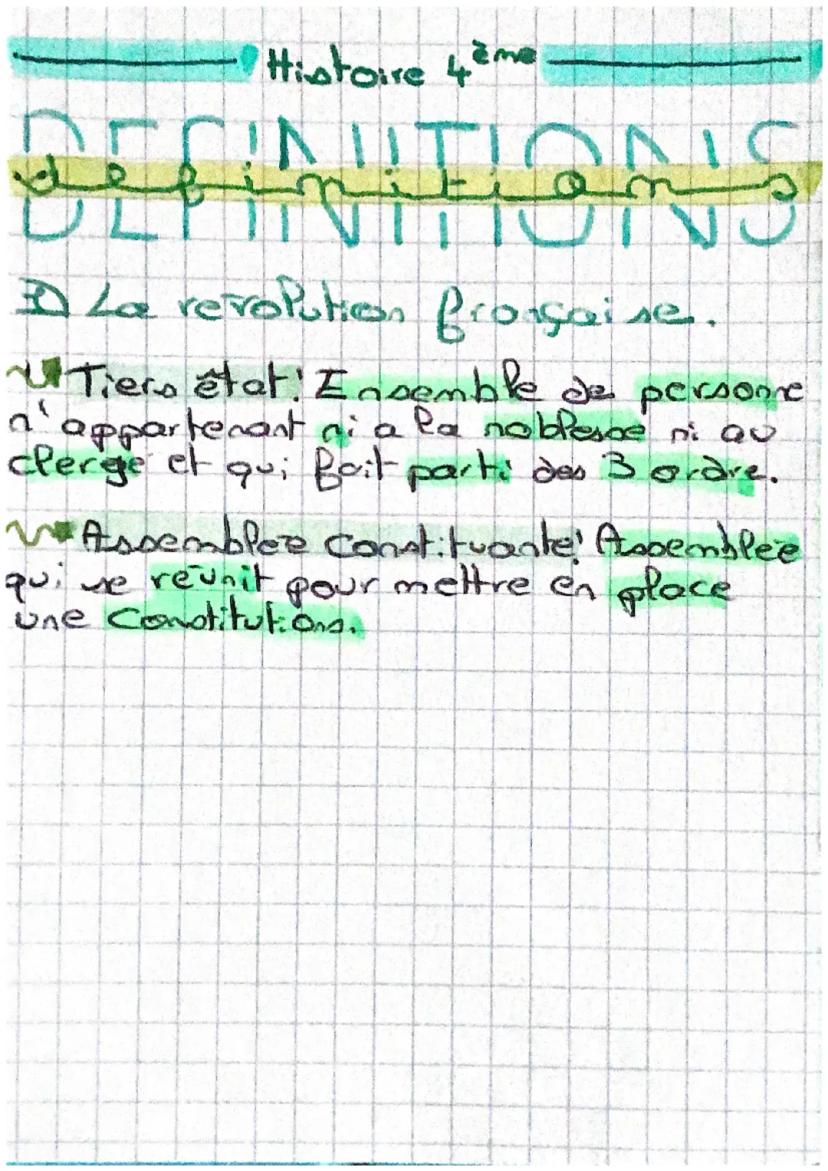 Histoire 4ème
DEFINITIONS
definitions
I) La révolution française.
Tiers état: Ensemble de personne
n'appartenant ni a la noblesse ni au
clergé et qui fait parti des 3 ordre.
Assemblée constituante: Assemblée
qui se réunit pour mettre en place
une Constitutions.